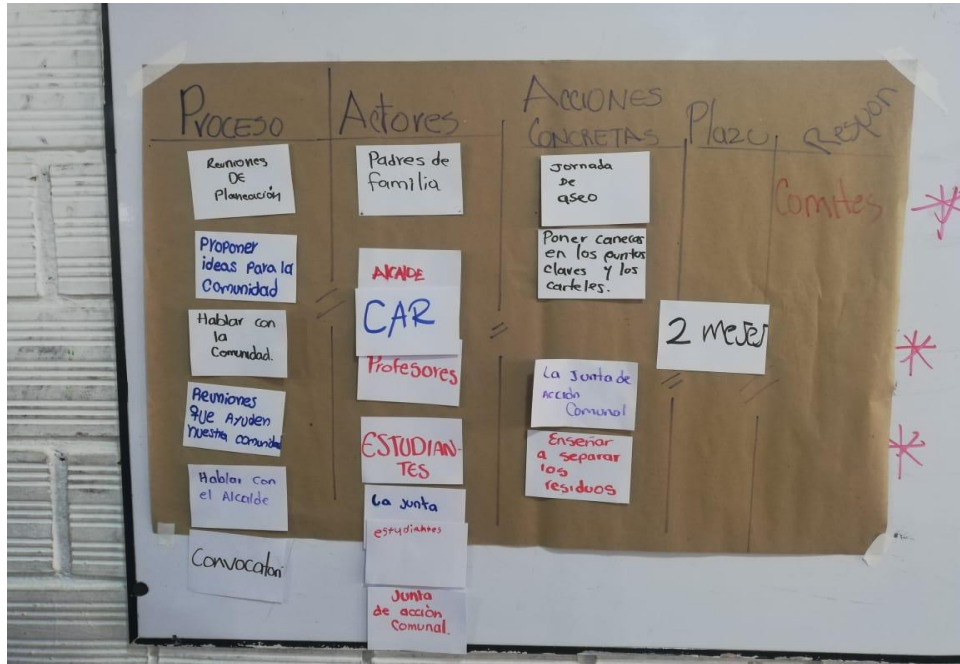 PROCESO
Reuniones
DE
Planeación
Proponer
ideas para la
Comunidad
Hablar con
la
Comunidad.
Reuniones
que Ayuden
nuestra comunidad
Hablar con
el Alcalde
Convocatori
Actores
Padres de
familia
AlCAlDE
CAR
Profesores
ESTUDIAN-
TES
La junta
estudiantes
Junta
de acción
Comunal.
ACCIONES
CONCRETAS
Jornada
De
aseo
Poner canecas
en los puntos
claves y los
carteles.
La Junta de
acción
Comunal
Enseñar
a separar
los
residuos
Plazo
2 meses
Respon
Comites